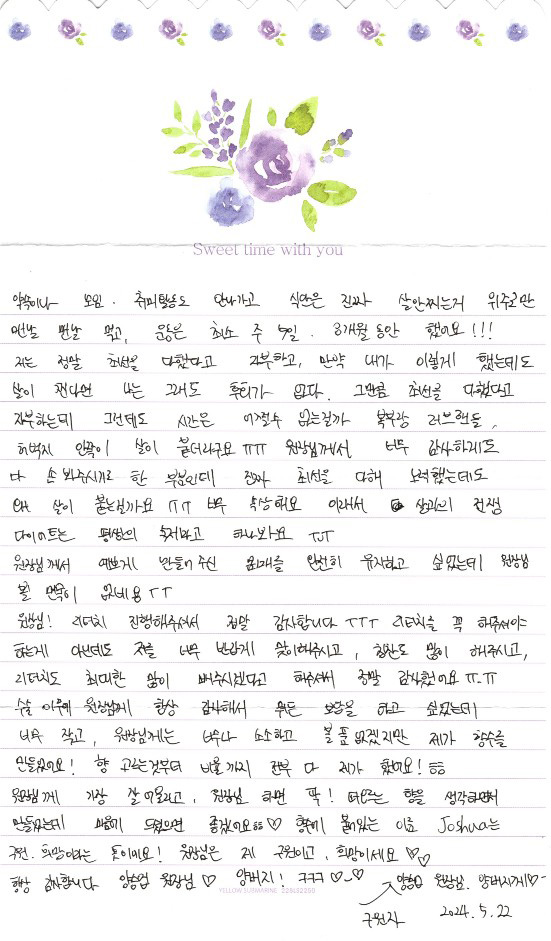 Sweet time with you
약속이나 모임. 취미활동도 안나가고 식단은 진짜 살안찌는거 위주로만
맨날 맨날 먹고, 운동은 최소 주 5일. 3개월 동안 했어요!!!
저는 정말 최선을 다했다고 자부하고, 만약 내가 이렇게 했는데도
살이 찐다면 나는 그래도 후회가 없다. 그만큼 최선을 다했다고
자부하는데 그런데도 시간은 어쩔수 없는걸까 복부랑 러브핸들,
허벅지 안쪽이 살이 붙더라구요 ㅠㅠ 원장님께서 너무 감사하게도
다 손 봐주시기로 한 부분인데 진짜 최선을 다해 노력했는데도
왜 살이 붙는걸까요 ㅠㅠ 너무 속상해요 이래서 살과의 전쟁
다이어트는 평생의 숙제라고 하나봐요 ㅠㅠ
원장님께서 예쁘게 만들어주신 몸매를 완전히 유지하고 싶었는데 원장님
볼 면목이 없네용 ㅜㅜ
원장님! 리터치 진행해주셔서 정말 감사합니다 ㅜㅜㅜ 리터치를 꼭 해주셔야
하는게 아닌데도 저를 너무 반갑게 맞이해주시고, 상담도 많이 해주시고,
리터치도 최대한 많이 빼주시겠다고 해주셔서 정말 감사했어요 ㅠ_ㅠ
수술 이후에 원장님께 항상 감사해서 뭐든 보답을 하고 싶었는데
너무 작고, 원장님께는 너무나 소소하고 볼품 없겠지만 제가 향수를
만들었어요! 향 고르는것부터 비율까지 전부 다 제가 했어요! ㅎㅎ
원장님께 가장 잘 어울리고, 원장님 하면 딱! 떠오르는 향을 생각하면서
만들었는데 마음에 드셨으면 좋겠어요 ㅎㅎ ♡ 향수에 붙어있는 이름 Joshua는
구원. 희망이라는 뜻이에요! 원장님은 제 구원이고, 희망이세요 ♡♡
항상 감사합니다 양승업 원장님 ♡ 양버지! ㅋㅋㅋ ♡-♡
양승업 원장님. 양버지께♡
구원자 2024.5.22
YELLOW SUBMARINE